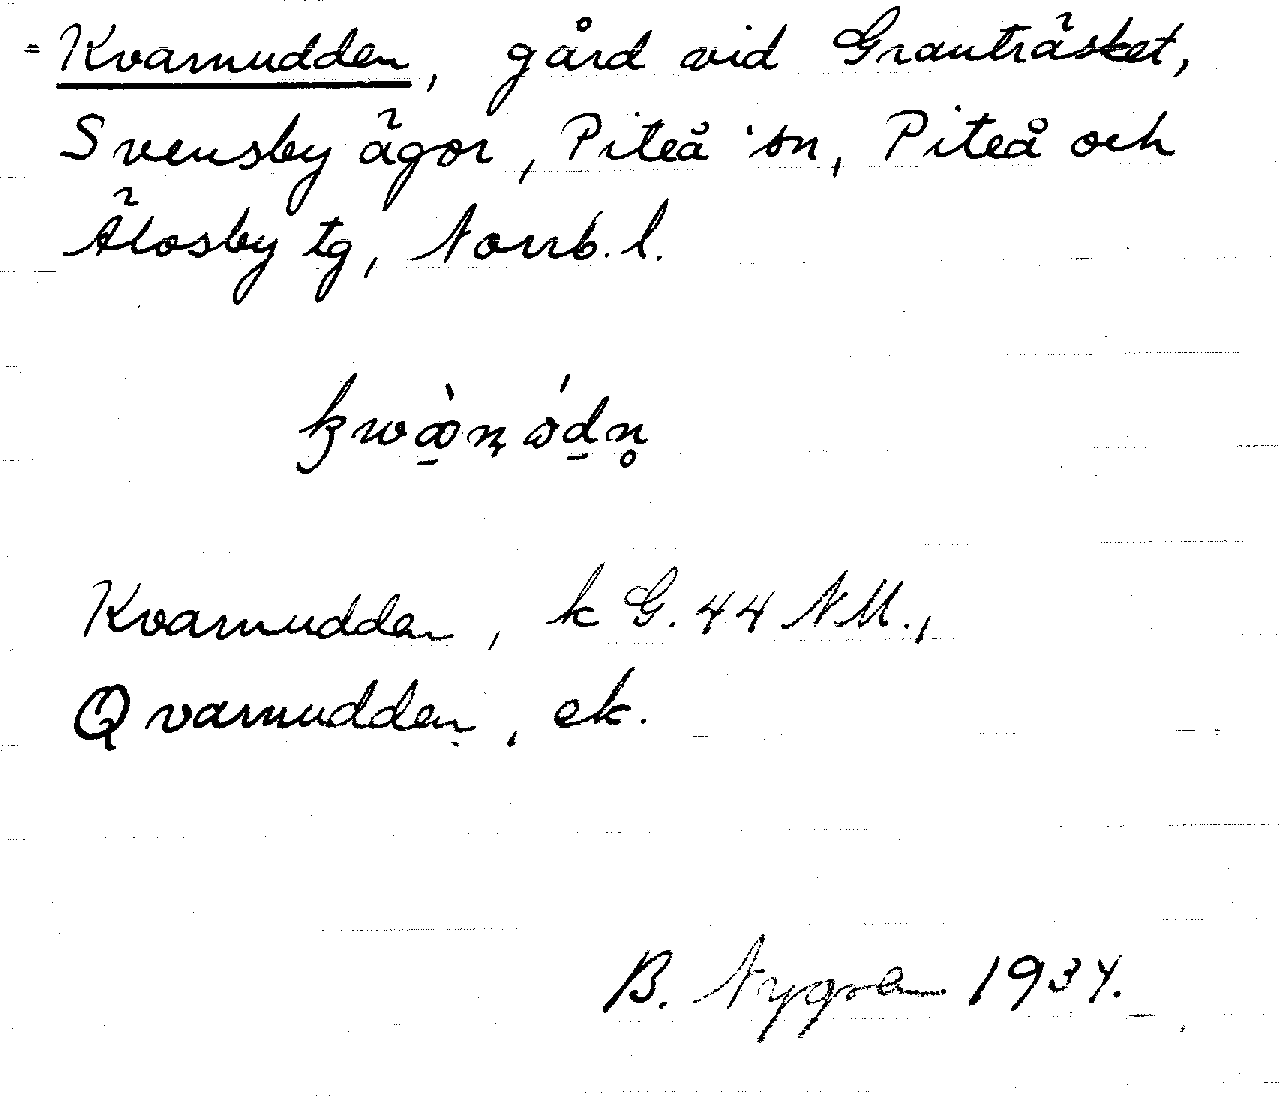 Kvarnudden, gård vid Granträsket,
Svensby ägor, Piteå sn, Piteå och
Älvsby tg, Norrb. l.
Kvarnudden, k G. 44 NM.,
Qvarnudden, ek.
B. Nygren 1934.